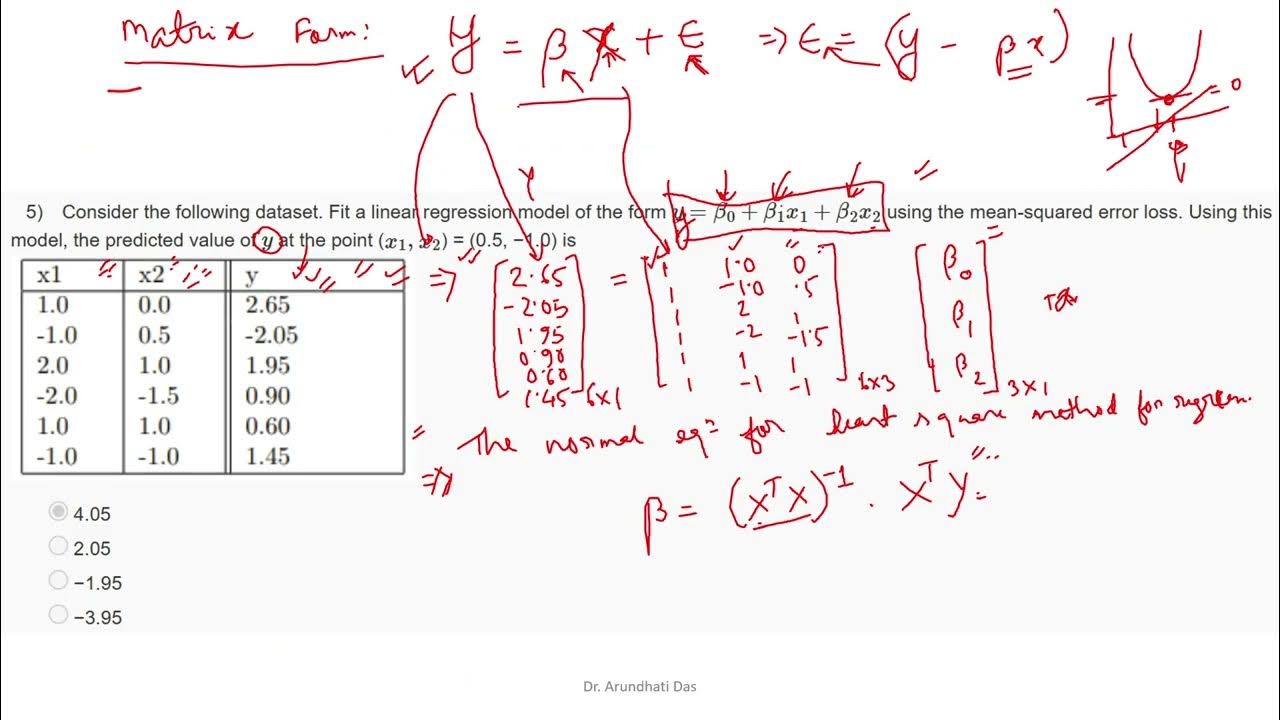 Matrix Form: y = β x + ε ⇒ ε = (y - βx)
= 0
β
Y
5) Consider the following dataset. Fit a linear regression model of the form y = β₀ + β₁x₁ + β₂x₂ using the mean-squared error loss. Using this
model, the predicted value of y at the point (x₁, x₂) = (0.5, −1.0) is
x1 x2 y
1.0 0.0 2.65
-1.0 0.5 -2.05
2.0 1.0 1.95
-2.0 -1.5 0.90
1.0 1.0 0.60
-1.0 -1.0 1.45
⇒ [2.65 = [1 1.0 0 [β₀
-2.05 1 -1.0 .5
1.95 1 2 1 β₁
0.90 1 -2 -1.5
0.60 1 1 1 β₂
1.45] 6×1 1 -1 -1] 6×3 ] 3×1
= The normal eqⁿ for least square method for
⇒
β = (XᵀX)⁻¹ . XᵀY =
4.05
2.05
−1.95
−3.95
Dr. Arundhati Das